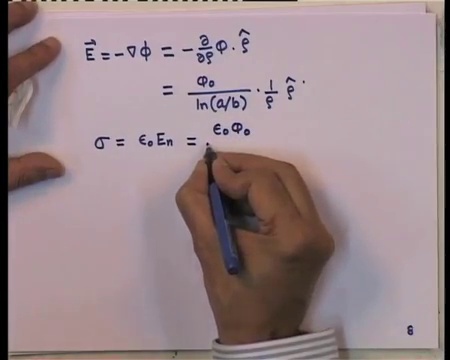 E⃗ = -∇ϕ = -∂/∂ρ ϕ · ρ̂
= Φ₀/ln(a/b) · 1/ρ ρ̂
σ = ε₀Eₙ = ε₀Φ₀
8